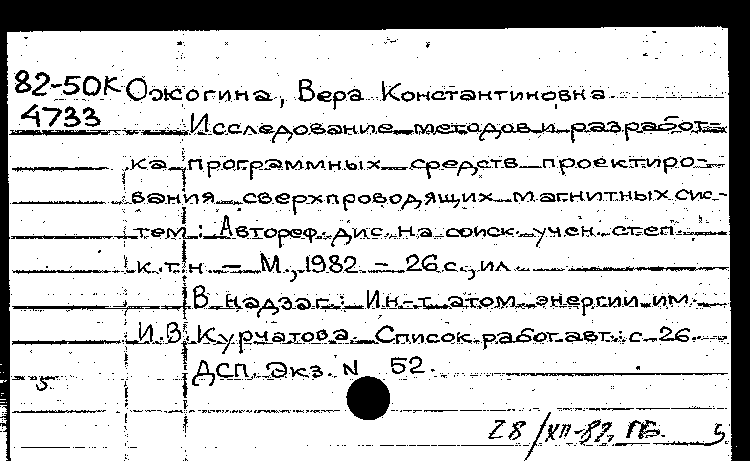 82-50К Ожогина, Вера Константиновна
4733 Исследование методов и разработ-
ка программных средств проектиро-
вания сверхпроводящих магнитных сис-
тем : Автореф. дис. на соиск. учен. степ.
к.т.н. – М., 1982 – 26 с., ил.
В надзаг.: Ин-т атом. энергии им.
И.В. Курчатова. Список работ авт.: с. 26.
ДСП. Экз. N 52.
28/XII-82, ПБ. 5